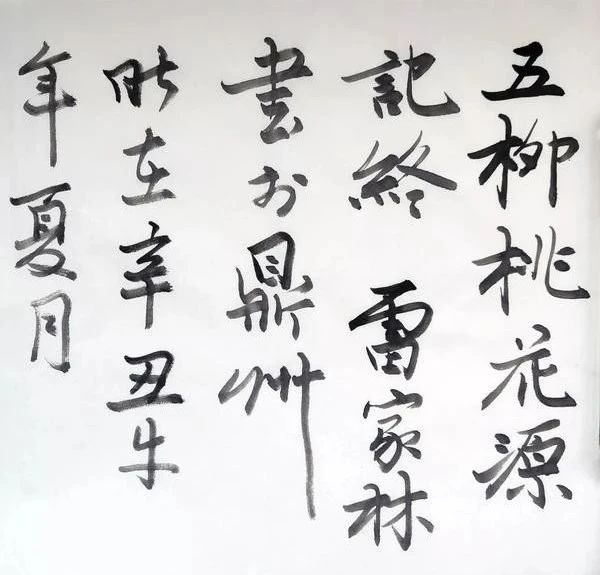 五柳桃花源
記終 雷家林
書於鼎州
時在辛丑牛
年夏月